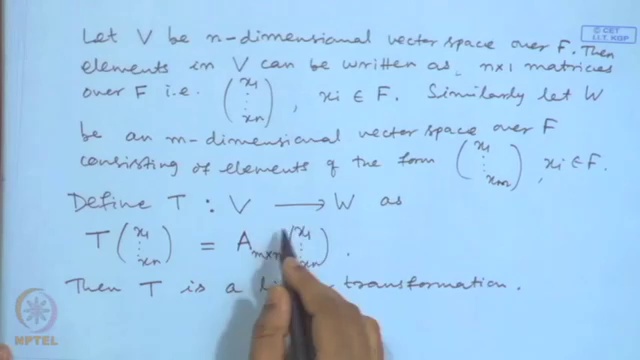 © CET
I.I.T. KGP
Let V be n-dimensional vector space over F. Then
elements in V can be written as, n×1 matrices
over F i.e. (x1 ⋮ xn), xi ∈ F. Similarly let W
be an m-dimensional vector space over F
consisting of elements of the form (x1 ⋮ xm), xi ∈ F.
Define T : V ⟶ W as
T(x1 ⋮ xn) = Am×n(x1 ⋮ xn).
Then T is a transformation.
NPTEL